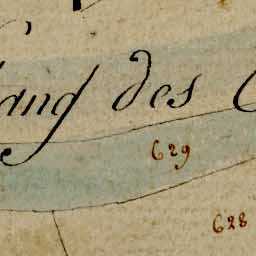 ang des
629
628